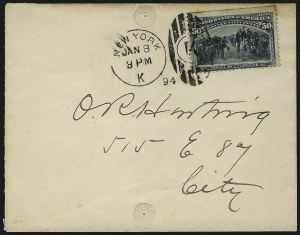 NEW YORK
JAN 8
9 PM
K
94
UNITED STATES OF AMERICA
50¢ 50¢
O. R. Hartwig
515 E 87
City